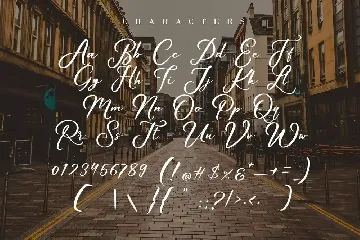 CHARACTERS
Aa Bb Cc Dd Ee Ff
Gg Hh Ii Jj Kk Ll
Mm Nn Oo Pp Qq
Rr Ss Tt Uu Vv Ww
0123456789 (!@#$%&*—+=,)
( |\ // " .:;?/>.<. )